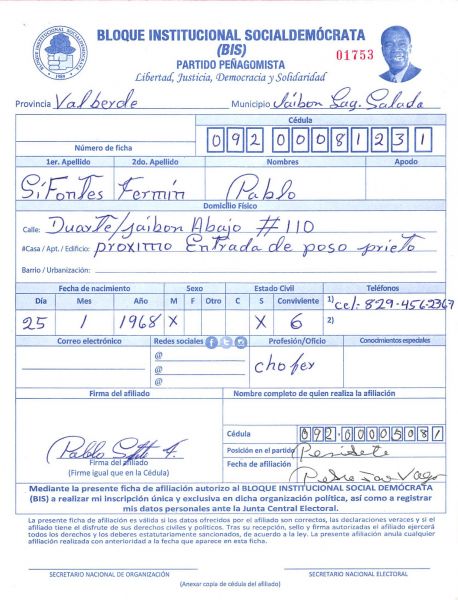 BLOQUE INSTITUCIONAL SOCIALDEMÓCRATA
(BIS)
01753
PARTIDO PEÑAGOMISTA
Libertad, Justicia, Democracia y Solidaridad
Provincia Valberde Municipio Jáibon Lag. Salada
Cédula
Número de ficha 09200081231
1er. Apellido 2do. Apellido Nombres Apodo
Sifontes Fermín Pablo
Domicilio Físico
Calle: Duarte/Jaibon Abajo #110
#Casa / Apt. / Edificio: proximo Entrada de poso prieto
Barrio / Urbanización:
Fecha de nacimiento Sexo Estado Civil Teléfonos
Día Mes Año M F Otro C S Conviviente 1) cel: 829-456-2367
25 1 1968 X X 6 2)
Correo electrónico Redes sociales Profesión/Oficio Conocimientos especiales
@ chofer
@
@
Firma del afiliado Nombre completo de quien realiza la afiliación
Cédula 092-00005081
Posición en el partido
Pablo
Firma del afiliado
(Firme igual que en la Cédula)
Fecha de afiliación
Mediante la presente ficha de afiliación autorizo al BLOQUE INSTITUCIONAL SOCIAL DEMÓCRATA
(BIS) a realizar mi inscripción única y exclusiva en dicha organización política, así como a registrar
mis datos personales ante la Junta Central Electoral.
La presente ficha de afiliación es válida si los datos ofrecidos por el afiliado son correctos, las declaraciones veraces y si el
afiliado tiene el disfrute de sus derechos civiles y políticos. Tras su recepción, sello y firma autorizadas el afiliado ejercerá
todos los derechos y los deberes estatutariamente sancionados, de acuerdo a la ley. La presente afiliación anula cualquier
afiliación realizada con anterioridad a la fecha que aparece en esta ficha.
SECRETARIO NACIONAL DE ORGANIZACIÓN SECRETARIO NACIONAL ELECTORAL
(Anexar copia de cédula del afiliado)